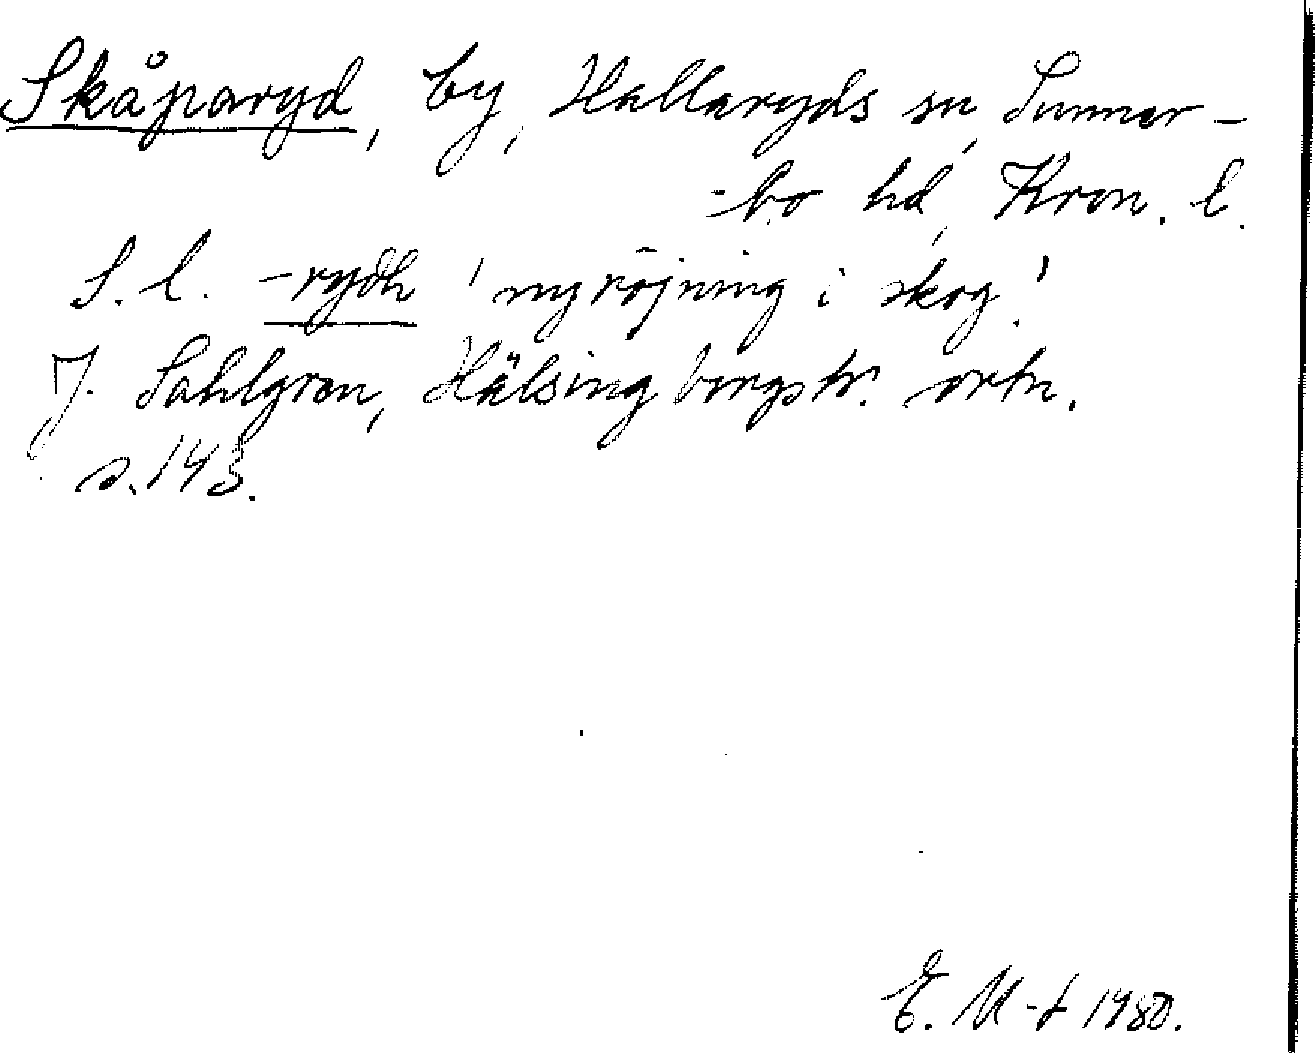 Skåparyd, by, Hallaryds sn, Sunner-
-bo hd, Kron. l.
S. l. -rydh 'nyröjning i skog'.
J. Sahlgren, Hälsingborgstr. ortn.
s. 143.
E. M-t 1980.